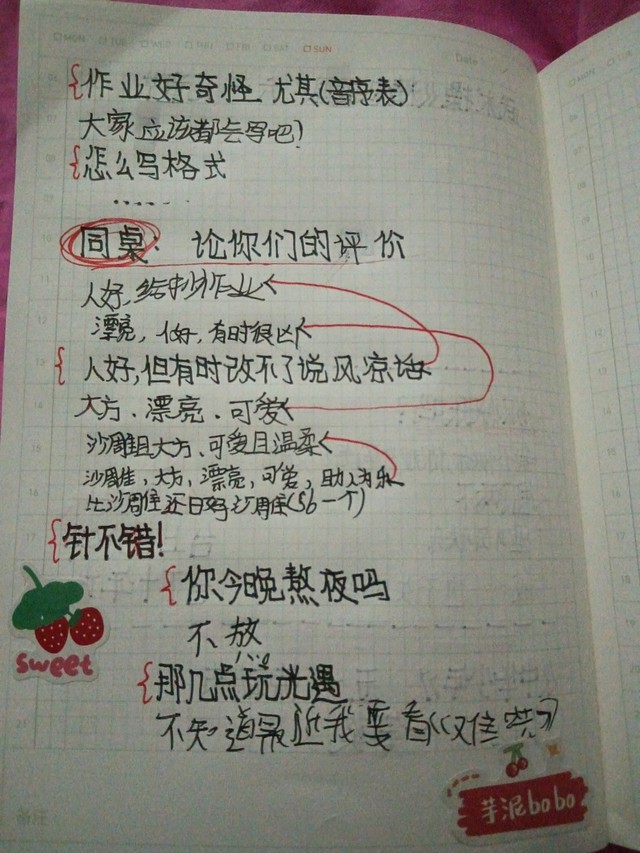 MON TUE WED THU FRI SAT SUN Date
作业好奇怪 尤其(音序表)
大家应该都会写吧?
怎么写格式
......
同桌: 论你们的评价
人好,给抄作业
漂亮,人好,有时很凶
人好,但有时改不了说风凉话
大方、漂亮、可爱
沙雕且大方、可爱且温柔
沙雕,大方,漂亮,可爱,助人为乐
针不错!
你今晚熬夜吗
不敖
sweet
那几点玩光遇
不知道最近我要看
芋泥bobo
备注